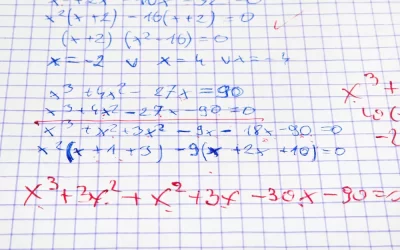 x²(x+2) - 16(x+2) = 0
(x+2) (x²-16) = 0
x = -2 v x = 4 v x = -4
x³ + 4x² - 27x = 90
x³ + 4x² - 27x - 90 = 0
x³ + x² + 3x² - 9x - 18x - 90 = 0
x²(x + 1 + 3) - 9(x + 2x + 10) = 0
x³ +
x³ + 2x² + x² + 3x - 30x - 90 = 0